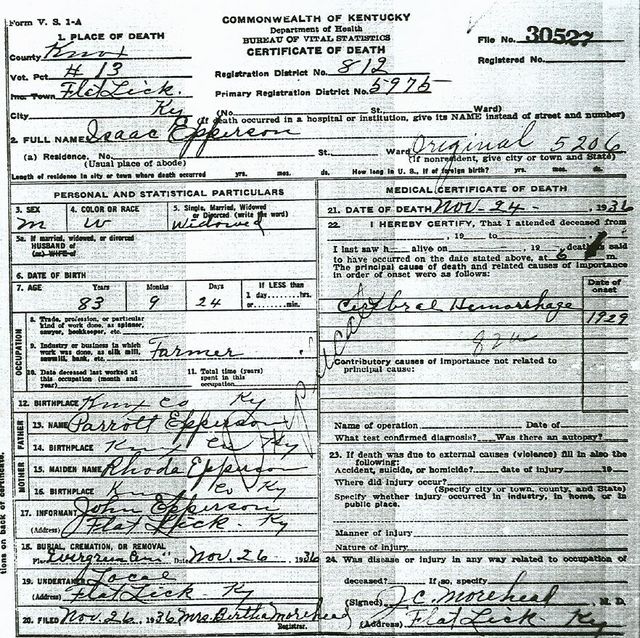 Form V. S. 1-A
COMMONWEALTH OF KENTUCKY
Department of Health
BUREAU OF VITAL STATISTICS
CERTIFICATE OF DEATH
File No. 30527
Registered No.
1. PLACE OF DEATH
County Knox
Vot. Pct. # 13
Inc. Town Flat Lick.
City Ky
Registration District No. 812
Primary Registration District No. 5975
(No. St. Ward)
(If death occurred in a hospital or institution, give its NAME instead of street and number)
2. FULL NAME Isaac Epperson
(a) Residence. No. St. Ward Original 5206
(Usual place of abode) (If nonresident, give city or town and State)
Length of residence in city or town where death occurred yrs. mos. ds. How long in U. S., if of foreign birth? yrs. mos. ds.
PERSONAL AND STATISTICAL PARTICULARS
3. SEX
M
4. COLOR OR RACE
W
5. Single, Married, Widowed
or Divorced (write the word)
Widowed
5a. If married, widowed, or divorced
HUSBAND of
(or) WIFE of
6. DATE OF BIRTH
7. AGE Years Months Days If LESS than
83 9 24 1 day......hrs.
or......min.
OCCUPATION
8. Trade, profession, or particular
kind of work done, as spinner,
sawyer, bookkeeper, etc.
9. Industry or business in which
work was done, as silk mill,
sawmill, bank, etc. Farmer
10. Date deceased last worked at
this occupation (month and
year)
11. Total time (years)
spent in this
occupation
12. BIRTHPLACE Knox Co Ky
FATHER
13. NAME Parrott Epperson
14. BIRTHPLACE Knox Co Ky
MOTHER
15. MAIDEN NAME Rhoda Epperson
16. BIRTHPLACE Knox Co Ky
17. INFORMANT John Epperson
(Address) Flat Lick Ky
18. BURIAL, CREMATION, OR REMOVAL
Place Evergreen Cem Date Nov. 26, 1936
19. UNDERTAKER Local
(Address) Flat Lick - Ky
20. FILED Nov. 26, 1936 Mrs. Bertha Morehead
Registrar.
MEDICAL CERTIFICATE OF DEATH
21. DATE OF DEATH Nov - 24 - , 1936
22. I HEREBY CERTIFY, That I attended deceased from
, 19 to , 19
I last saw h alive on , 19 , death is said
to have occurred on the date stated above, at 6 m.
The principal cause of death and related causes of importance
in order of onset were as follows:
Date of
onset
Cerebral Hemorrhage 1929
82a
Contributory causes of importance not related to
principal cause:
Name of operation Date of
What test confirmed diagnosis? Was there an autopsy?
23. If death was due to external causes (violence) fill in also the
following:
Accident, suicide, or homicide? date of injury 19
Where did injury occur?
(Specify city or town, county, and State)
Specify whether injury occurred in industry, in home, or in
public place.
Manner of injury
Nature of injury
24. Was disease or injury in any way related to occupation of
deceased? If so, specify
(Signed) J. C. Morehead, M. D.
(Address) Flat Lick - Ky
tions on back of certificate.